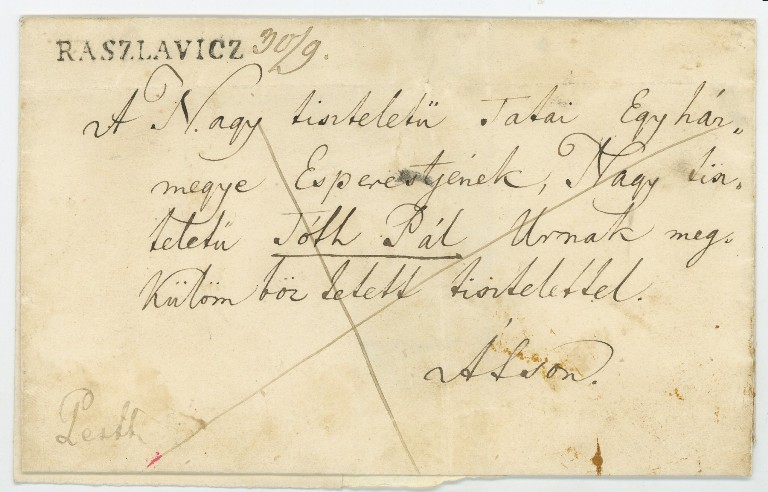 RASZLAVICZ 30/9.
A Nagy tiszteletű Tatai Egyhár„
megye Esperestjének, Nagy tisz„
teletű Tóth Pál Urnak meg„
külömböztetett tisztelettel.
Ácson.
Pesth